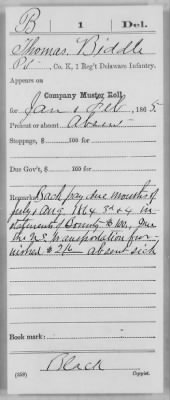 B | 1 | Del.
Thomas Biddle
Pvt., Co. K, 1 Reg't Delaware Infantry.
Appears on
Company Muster Roll
for Jan & Feb, 1865.
Present or absent Absent
Stoppage, $ 100 for
Due Gov't, $ 100 for
Remarks: Back pay due months of
July & Aug 1864 3d & 4 in-
stalments of Bounty $100, Due
the U.S. transportation fur-
nished $ absent sick
Book mark:
Black
(358) Copyist.